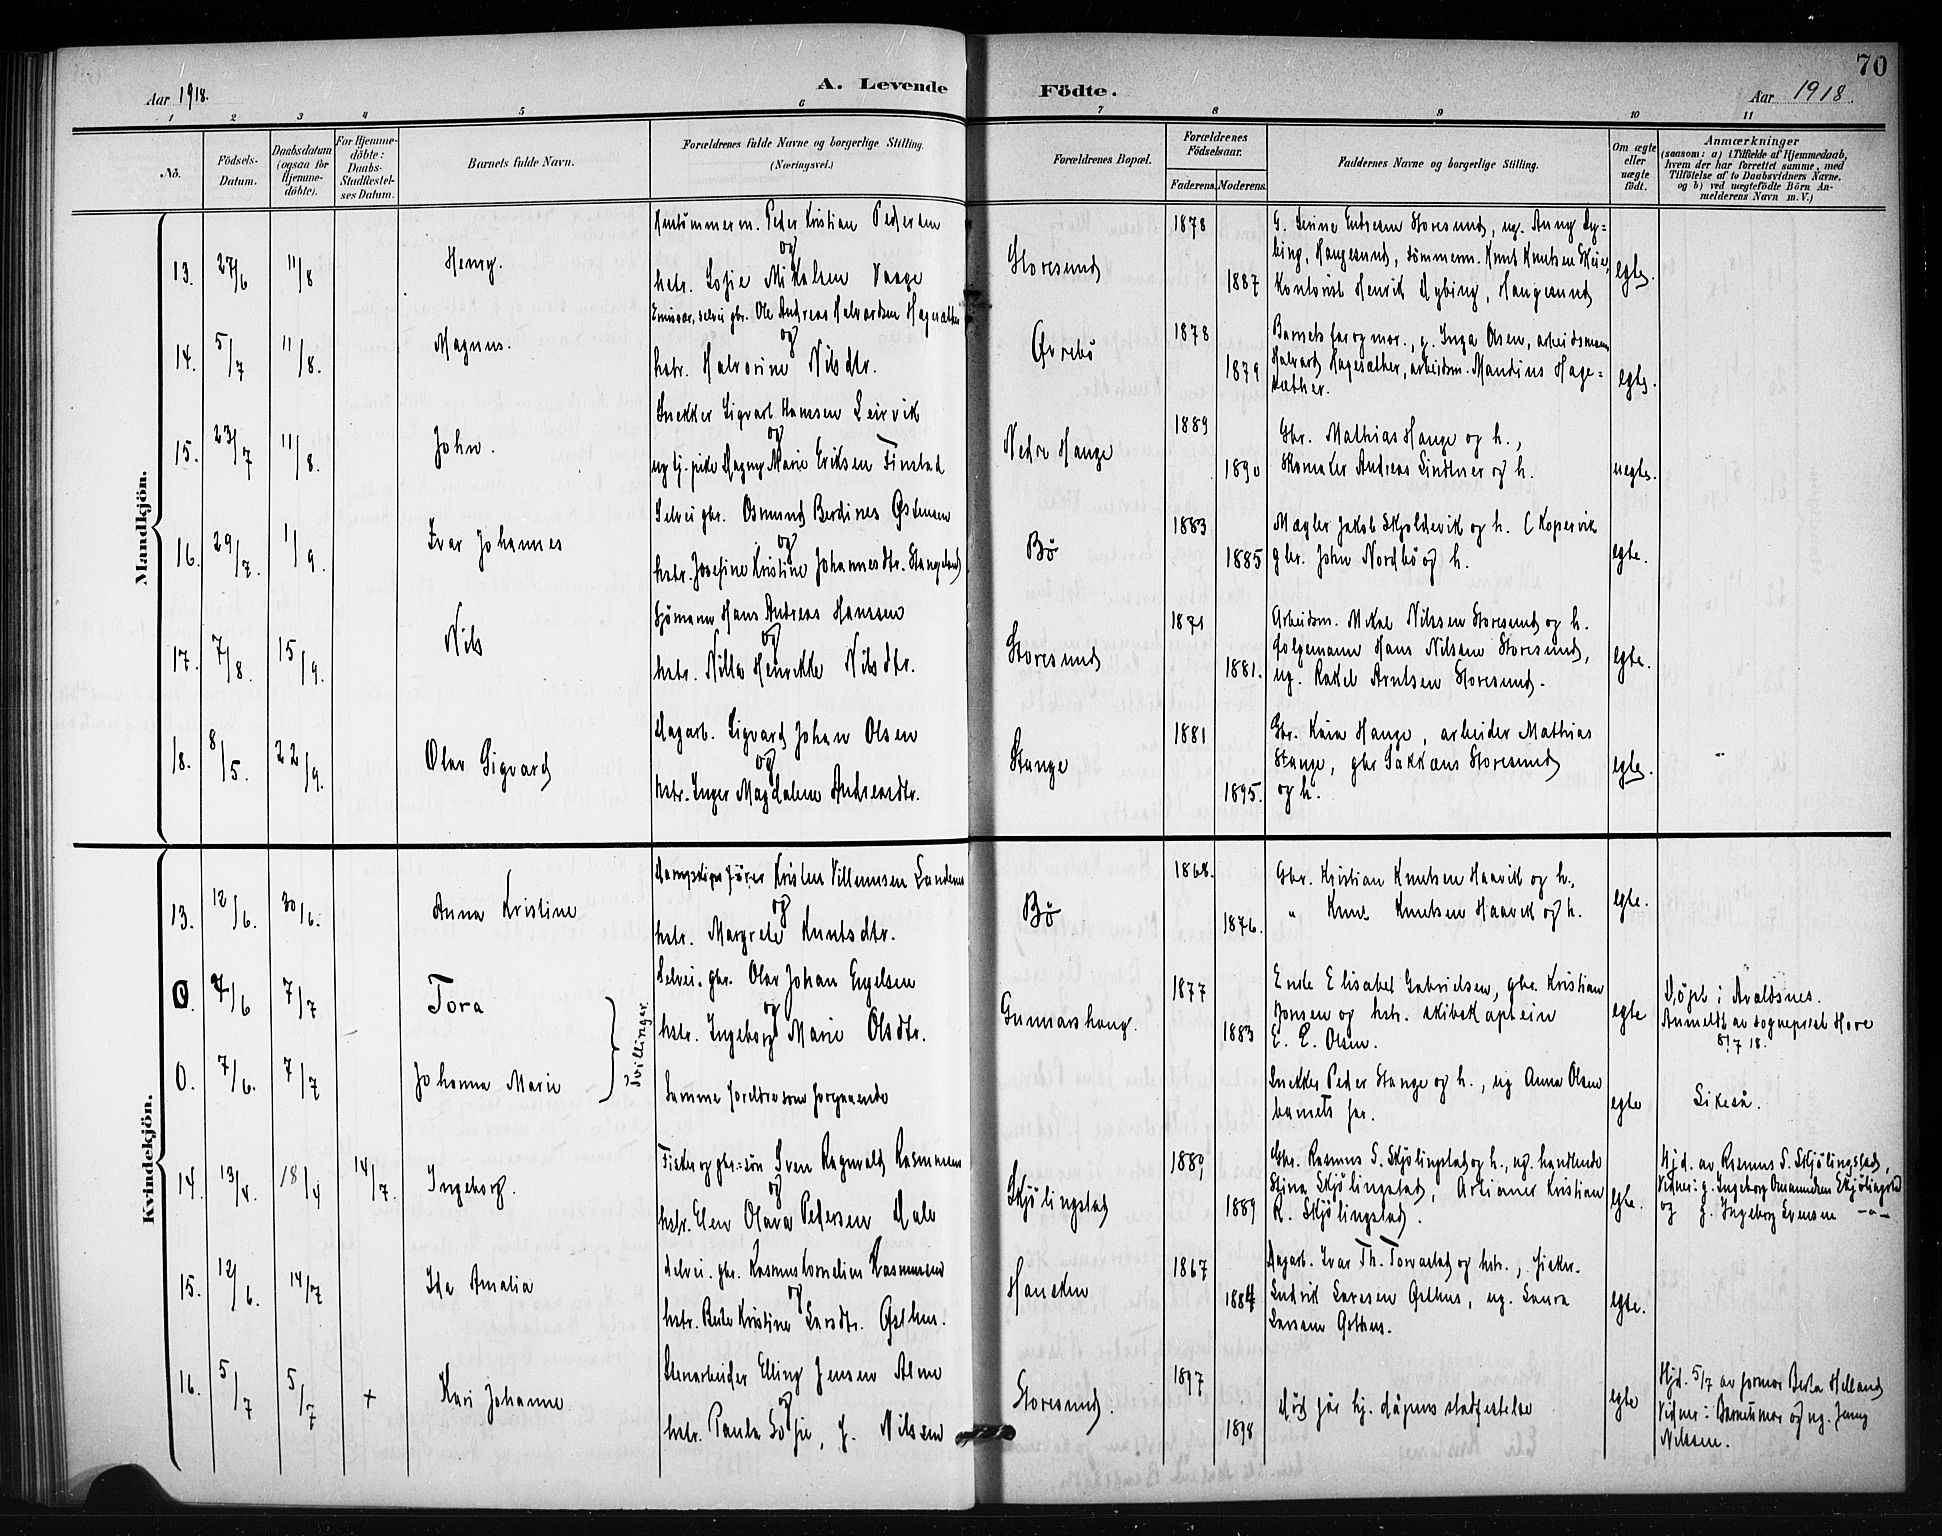 70
Aar 1918.
A. Levende Födte.
Aar 1918.
1 2 3 4 5 6 7 8 9 10 11
No.
Födsels-Datum.
Daabsdatum (ogsaa for Hjemme-döbte).
For Hjemme-döbte: Daabs-Stadfæstel-ses Datum.
Barnets fulde Navn.
Forældrenes fulde Navne og borgerlige Stilling.
(Næringsvei.)
Forældrenes Bopæl.
Forældrenes Födselsaar.
Faderens. Moderens.
Faddernes Navne og borgerlige Stilling.
Om ægte eller uægte födt.
Anmærkninger
(saasom: a) i Tilfælde af Hjemmedaab,
hvem der har forrettet samme, med
Tilföielse af to Daabsvidners Navne,
og b) ved uægtefödte Börn An-
melderens Navn m. V.)
Mandkjön.
13. 27/6 11/8 Henry.
Peder Kristian Pedersen
og
hstr. Sofie Mikalsen Vaage
Storesund 1878 1887
G. Serine Storesund, ug. Anny Ly=
bing, Haugesund, tömmerm. Knut Knutsen Skeie,
Kontorist Henrik Lybing, Haugesund
egte.
14. 5/7 11/8. Magnus.
Emissær, selvei gbr. Ole Andreas Halvardsen Hagesæther
og
hstr. Halvorine Nilsdtr.
Øvrebö 1878 1879
Barnets far og mor., g. Inga Olsen, arbeidsmann
Halvard Hagesæther, arbeidsm. Mandius Hage=
sæther.
egte.
15. 23/7 11/8. John.
Snekker Sigvart Hanssen Leirvik
og
ug tj. pike Magny Marie Eriksen Finstad
Nedre Hauge 1889 1890
Gbr. Mathias Hauge og h.,
Skomaker Andreas Lindtner og h.
uegte.
16. 29/7. 1/9. Ivar Johannes
Selvei gbr. Osmund Berdines Østensen
og
hstr. Josefine Kristine Johannesdtr. Stangeland
Bö 1883 1885
Mægler Jakob Skjoldevik og h. (Kopervik
gbr. John Nordbö og h.
egte.
17. 7/8. 15/9. Nils
Sjömann Hans Andreas Hanssen
og
hstr. Nilla Henrikke Nilsdtr.
Storesund 1871 1881.
Arbeidsm. Mikal Nilssen Storesund og h.
Hans Nilsen Storesund,
ug. Rakel Arntsen Storesund.
egte.
18. 8/5. 22/9. Olav Sigvard
Dagarb. Sigvard Johan Olsen
og
hstr. Inger Magdalene Andreasdtr.
Stange 1881 1895.
Gbr. Kaia Hauge, arbeider Mathias
Stange, gbr Sakkæus Storesund
og h.
egte.
Kvindekjön.
13. 12/6. 30/6. Anna Kristine
Dampskipsförer Kristen Villumsen
og
hstr. Margrete Knutsdtr.
Bö 1868. 1876.
Gbr. Kristian Knutsen Haavik og h.,
" Knut Knutsen Haavik og h.
egte.
0. 7/6 7/7 Tora
Selvei. gbr. Olav Johan Engelsen
og
hstr. Ingeborg Marie Olsdtr.
Gunnarshaug. 1877 1883
Enke Elisabet Gabrielsen, gbr. Kristian
Jonsen og hstr. skibskaptein
E. E. Olsen.
egte
Döpt i Avaldsnes.
Anmeldt av sogneprest Hove
8/7 18.
Tvillinger.
0. 7/6. 7/7 Johanna Marie
Samme foreldre som forgaaende
Snekker Peder Stange og h., ug Anna Olsen
barnets far.
egte
Likeså.
14. 13/4. 18/4 14/7. Ingeborg.
Fisker og gbr.=sön Sven Ragnvald Rasmussen
og
hstr. Elen Olava Pedersen Dale
Skjölingstad 1889 1889
Gbr. Rasmus S. Skjölingstad og h., ug. handlende
Stina Skjölingstad, Kristian
R. Skjölingstad.
egte.
Hjd. av Rasmus S. Skjölingstad,
Vidner: g. Ingeborg Skjölingstad
og g. Ingeborg Svensen -"-
15. 12/6. 14/7 Ida Amalia
Selvei. gbr. Rasmus Kornelius Rasmussen
og
hstr. Berte Kristine Larsdtr. Østhus.
Hausken 1867 1884
Dagarb. Ivar Th. Torvastad og hstr., fisker.
Ludvik Larssen Østhus, ug. Laura
Larssen Østhus.
egte.
16. 5/7 5/7 + Kari Johanne
Stenarbeider Elling Jensen Alme
og
hstr. Paula Sofie, f. Nilsen
Storesund. 1897 1898
död för hj. dåpens stadfestelse
egte
Hjd. 5/7 av farmor Berta Helland
Vidner: Barnets mor og ug. Jenny
Nilssen.